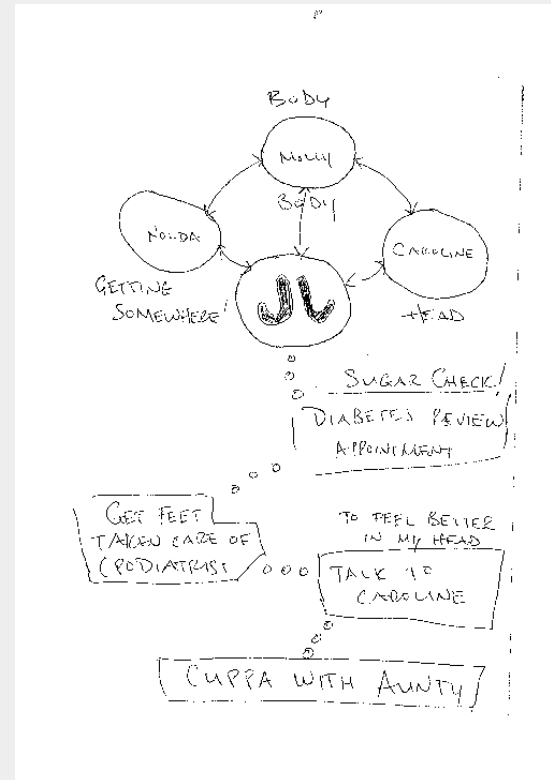 BODY
MOLLY
BODY
CAROLINE
GETTING
SOMEWHERE!
HEAD
SUGAR CHECK!
DIABETES REVIEW
APPOINTMENT
GET FEET
TAKEN CARE OF
(PODIATRIST
TO FEEL BETTER
IN MY HEAD
TALK TO
CAROLINE
CUPPA WITH AUNTY